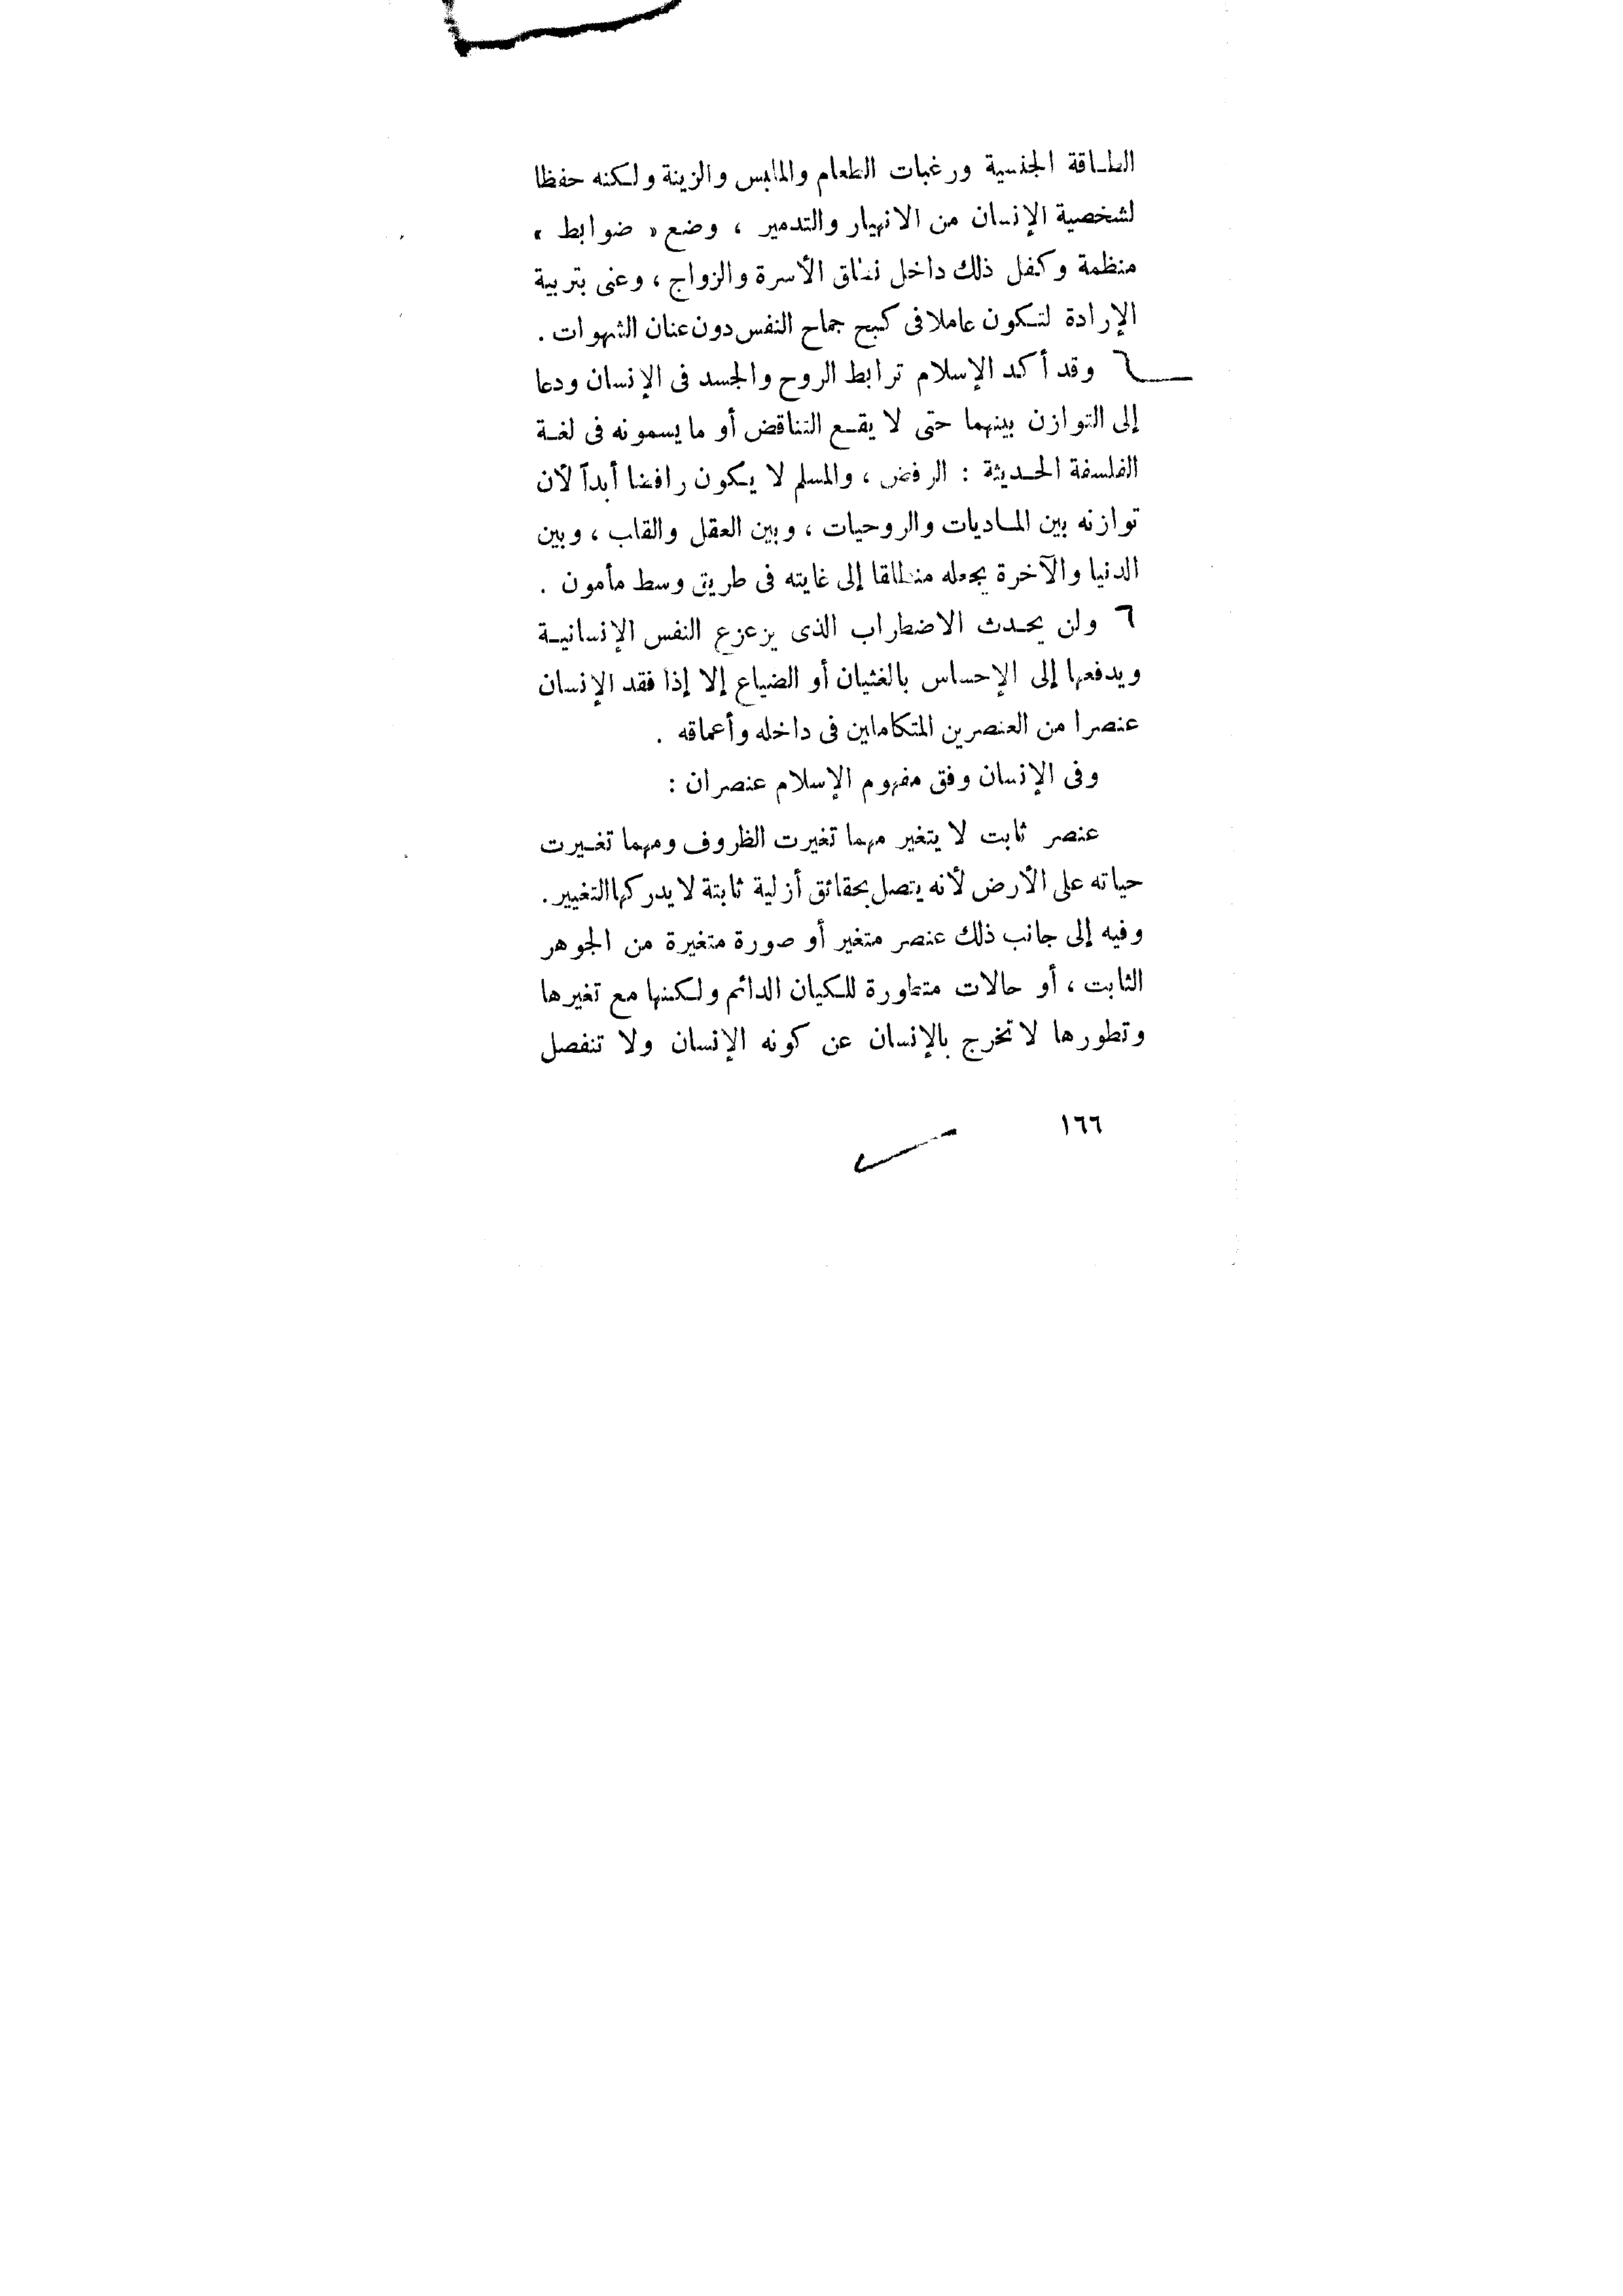 الطاقة الجنسية ورغبات الطعام والملابس والزينة ولكنه حفظا
لشخصية الإنسان من الانهيار والتدمير ، وضع « ضوابط »
منظمة وكفل ذلك داخل نطاق الأسرة والزواج ، وعنى بتربية
الإرادة لتكون عاملا فى كبح جماح النفس دون عنان الشهوات .
وقد أكد الإسلام ترابط الروح والجسد فى الإنسان ودعا
إلى التوازن بينهما حتى لا يقع التناقض أو ما يسمونه فى لغة
الفلسفة الحديثة : الرفض ، والمسلم لا يكون رافضا أبداً لأن
توازنه بين الماديات والروحيات ، وبين العقل والقلب ، وبين
الدنيا والآخرة يجعله منطلقا إلى غايته فى طريق وسط مأمون .
ولن يحدث الاضطراب الذى يزعزع النفس الإنسانية
ويدفعها إلى الإحساس بالغثيان أو الضياع إلا إذا فقد الإنسان
عنصرا من العنصرين المتكاملين فى داخله وأعماقه .
وفى الإنسان وفق مفهوم الإسلام عنصران :
عنصر ثابت لا يتغير مهما تغيرت الظروف ومهما تغيرت
حياته على الأرض لأنه يتصل بحقائق أزلية ثابتة لا يدركها التغيير .
وفيه إلى جانب ذلك عنصر متغير أو صورة متغيرة من الجوهر
الثابت ، أو حالات متطورة للكيان الدائم ولكنها مع تغيرها
وتطورها لا تخرج بالإنسان عن كونه الإنسان ولا تنفصل
١٦٦